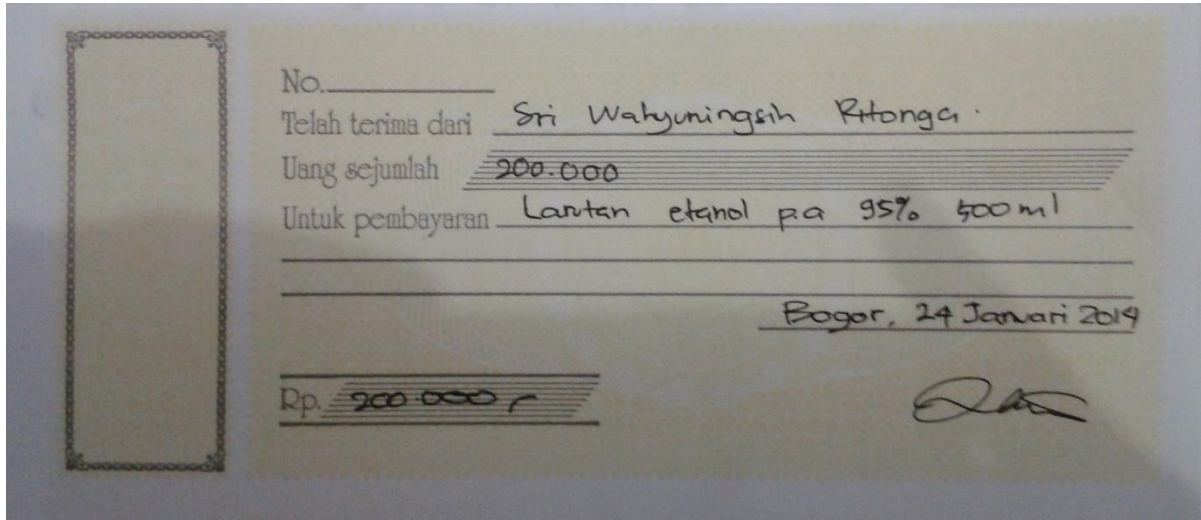 No.
Telah terima dari Sri Wahyuningsih Ritonga.
Uang sejumlah 200.000
Untuk pembayaran Larutan etanol p.a 95% 500 ml
Bogor, 24 Januari 2014
Rp. 200.000,-